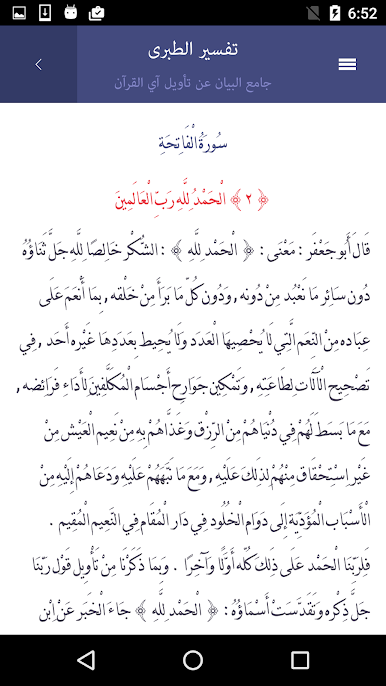 6:52
تفسير الطبرى
جامع البيان عن تأويل آي القرآن
سُورَةُ الْفَاتِحَةِ
﴿ ٢ ﴾ الْحَمْدُ لِلَّهِ رَبِّ الْعَالَمِينَ
قَالَ أَبُو جَعْفَر : مَعْنَى : ﴿ الْحَمْد لِلَّهِ ﴾ : الشُّكْر خَالِصًا لِلَّهِ جَلَّ ثَنَاؤُهُ
دُون سَائِر مَا نَعْبُد مِنْ دُونه , وَدُون كُلّ مَا بَرَأَ مِنْ خَلْقه , بِمَا أَنْعَمَ عَلَى
عِبَاده مِنْ النِّعَم الَّتِي لَا يُحْصِيهَا الْعَدَد وَلَا يُحِيط بِعَدَدِهَا غَيْره أَحَد , فِي
تَصْحِيح الْآلَات لِطَاعَتِهِ , وَتَمْكِين جَوَارِح أَجْسَام الْمُكَلَّفِينَ لِأَدَاءِ فَرَائِضه ,
مَعَ مَا بَسَطَ لَهُمْ فِي دُنْيَاهُمْ مِنْ الرِّزْق وَغَذَّاهُمْ بِهِ مِنْ نَعِيم الْعَيْش مِنْ
غَيْر اسْتِحْقَاق مِنْهُمْ لِذَلِكَ عَلَيْهِ , وَمَعَ مَا نَبَّهَهُمْ عَلَيْهِ وَدَعَاهُمْ إلَيْهِ مِنْ
الْأَسْبَاب الْمُؤَدِّيَة إلَى دَوَام الْخُلُود فِي دَار الْمُقَام فِي النَّعِيم الْمُقِيم .
فَلِرَبِّنَا الْحَمْد عَلَى ذَلِكَ كُلّه أَوَّلًا وَآخِرًا . وَبِمَا ذَكَرْنَا مِنْ تَأْوِيل قَوْل رَبّنَا
جَلَّ ذِكْره وَتَقَدَّسَتْ أَسْمَاؤُهُ : ﴿ الْحَمْد لِلَّهِ ﴾ جَاءَ الْخَبَر عَنْ ابْن